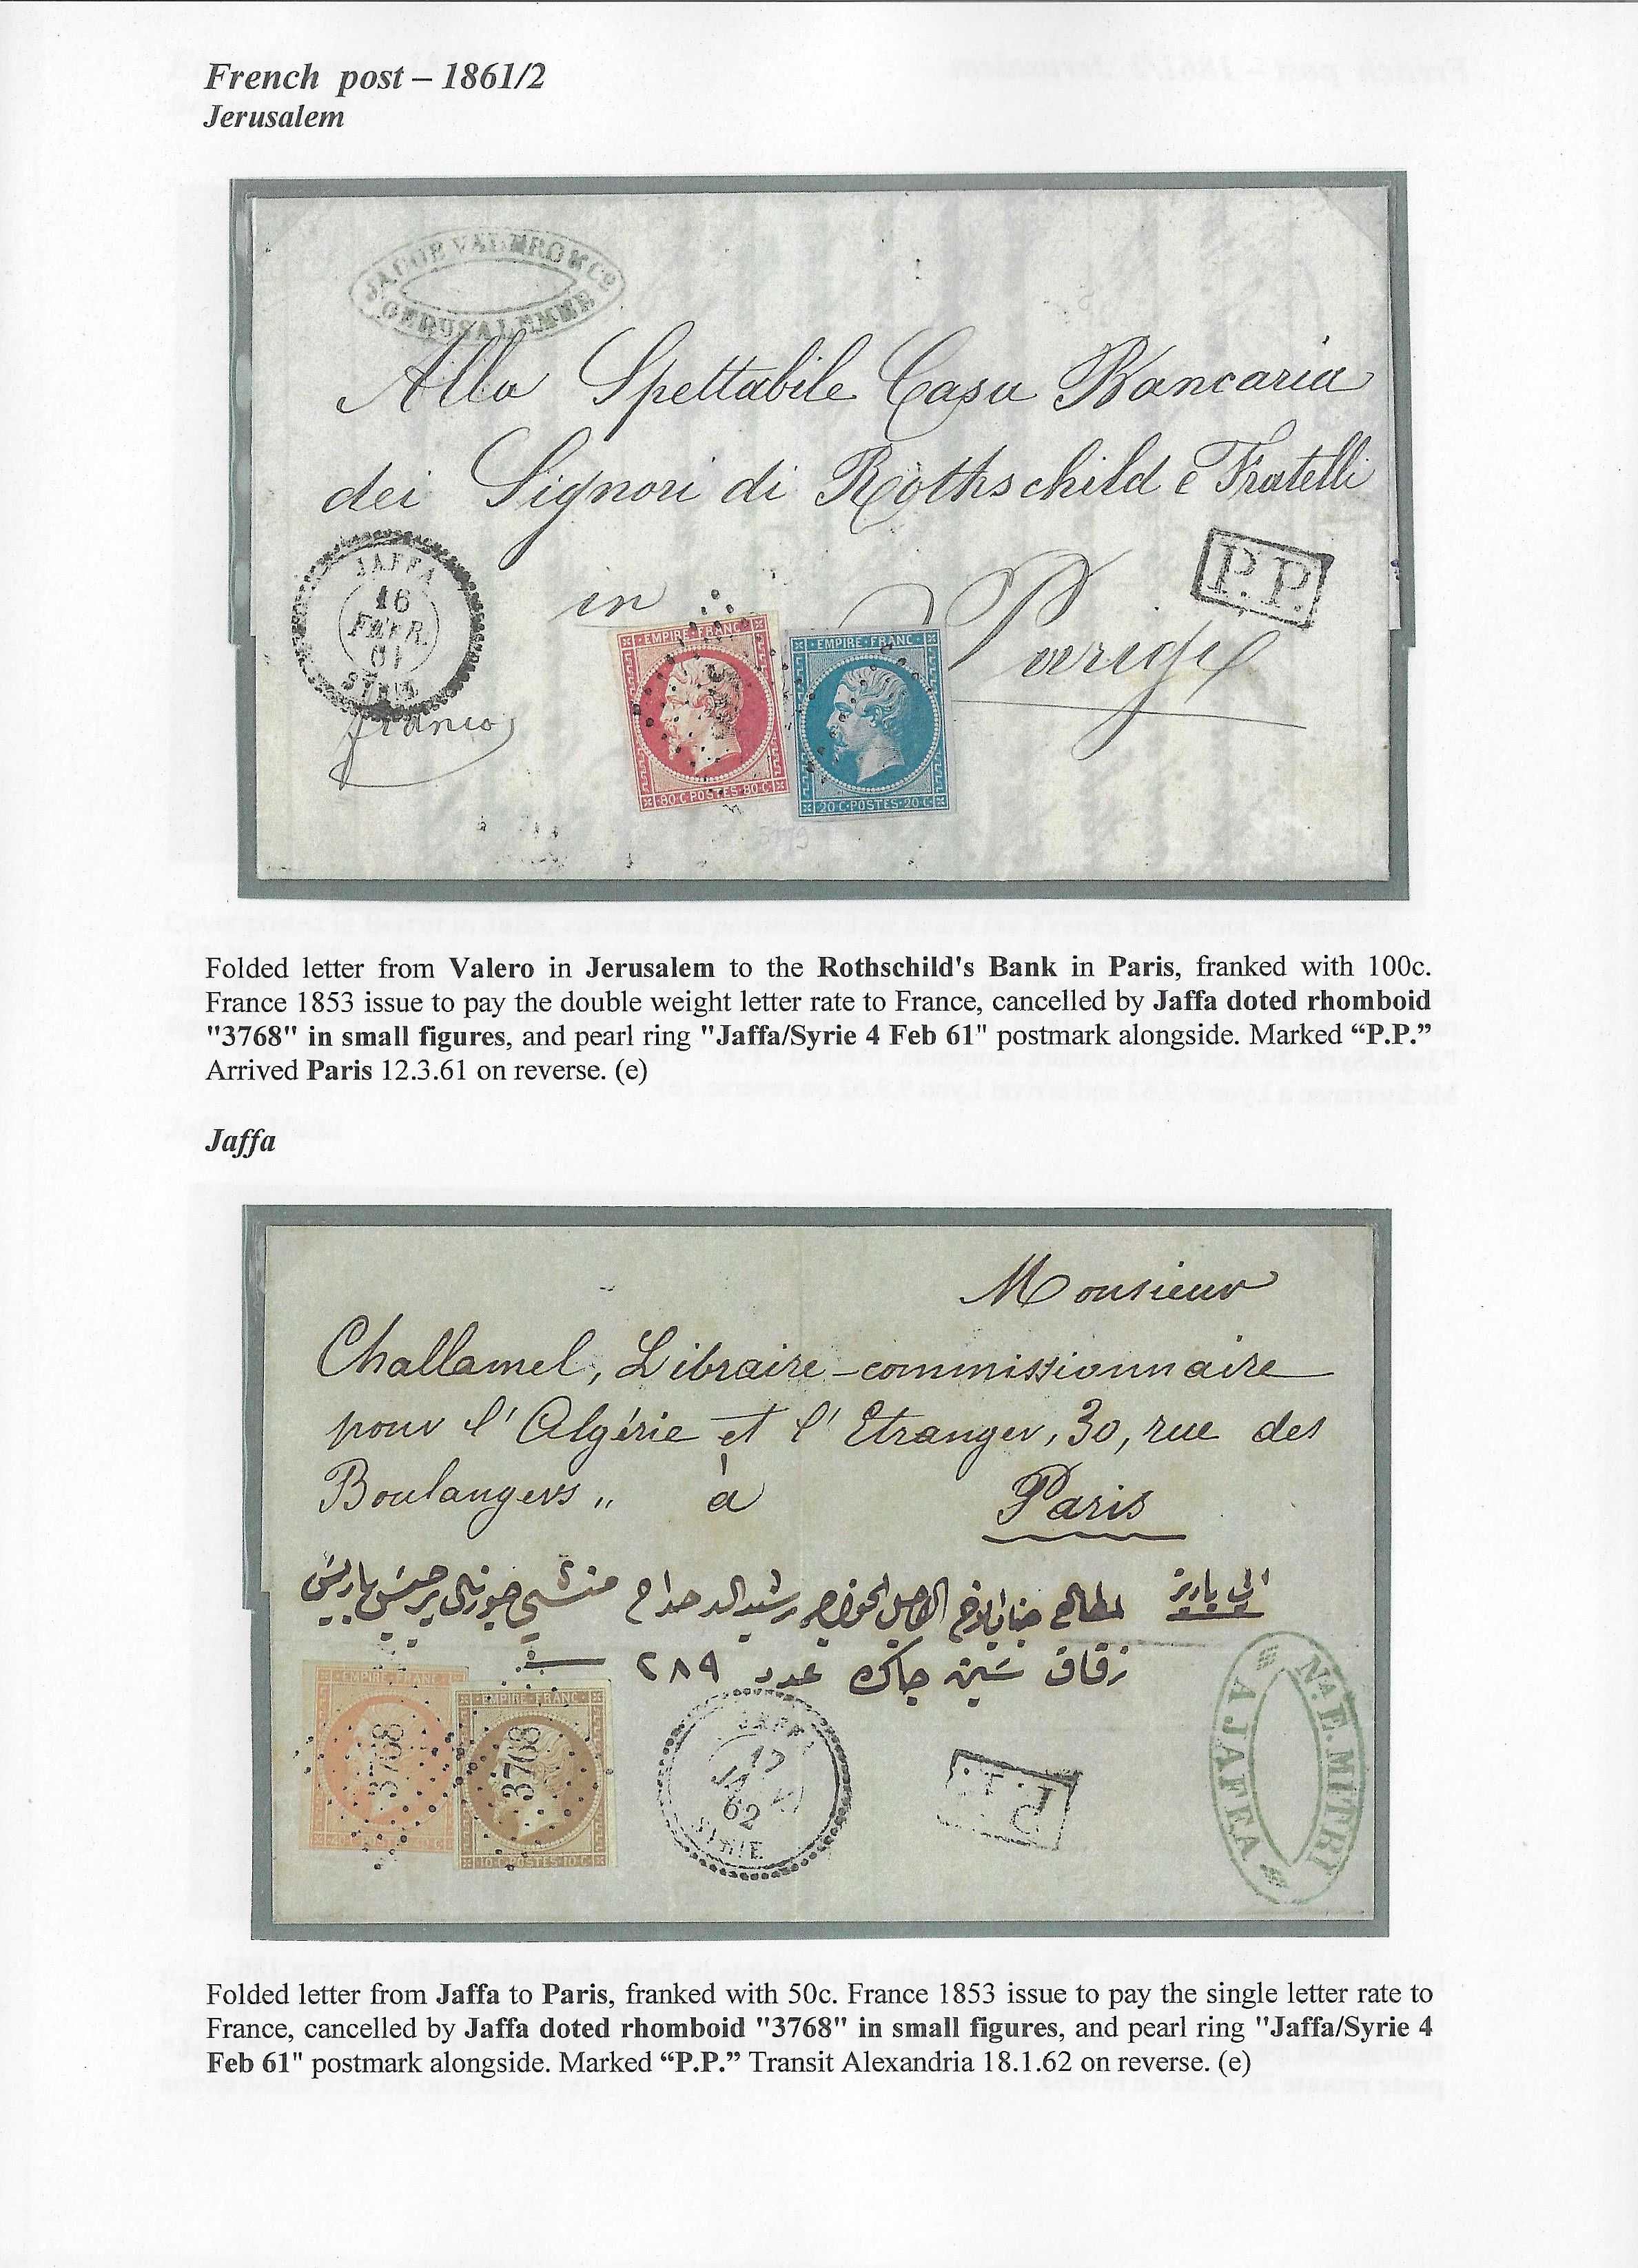 French post – 1861/2
Jerusalem
JACOB VALERO & Cº
GERUSALEMME
Alla Spettabile Casa Bancaria
dei Signori di Rothschild e Fratelli
in Parigi
P.P.
JAFFA
16
FEVR.
61
SYRIE
franco
EMPIRE FRANC
80 C POSTES 80 C
EMPIRE FRANC
20 C POSTES 20 C
Folded letter from Valero in Jerusalem to the Rothschild's Bank in Paris, franked with 100c.
France 1853 issue to pay the double weight letter rate to France, cancelled by Jaffa doted rhomboid
"3768" in small figures, and pearl ring "Jaffa/Syrie 4 Feb 61" postmark alongside. Marked “P.P.”
Arrived Paris 12.3.61 on reverse. (e)
Jaffa
Monsieur
Challamel, Libraire-commissionnaire
pour l'Algérie et l'Etranger, 30, rue des
Boulangers,, à Paris
الى باريز
رشيد الدحداح
باريس
زقاق سَين جاك عدد ٢٨٩
EMPIRE FRANC
3768
EMPIRE FRANC
3768
10 C POSTES 10 C
JAFFA
62
SYRIE
P.P.
Nª E. MITRI
A JAFFA
Folded letter from Jaffa to Paris, franked with 50c. France 1853 issue to pay the single letter rate to
France, cancelled by Jaffa doted rhomboid "3768" in small figures, and pearl ring "Jaffa/Syrie 4
Feb 61" postmark alongside. Marked “P.P.” Transit Alexandria 18.1.62 on reverse. (e)